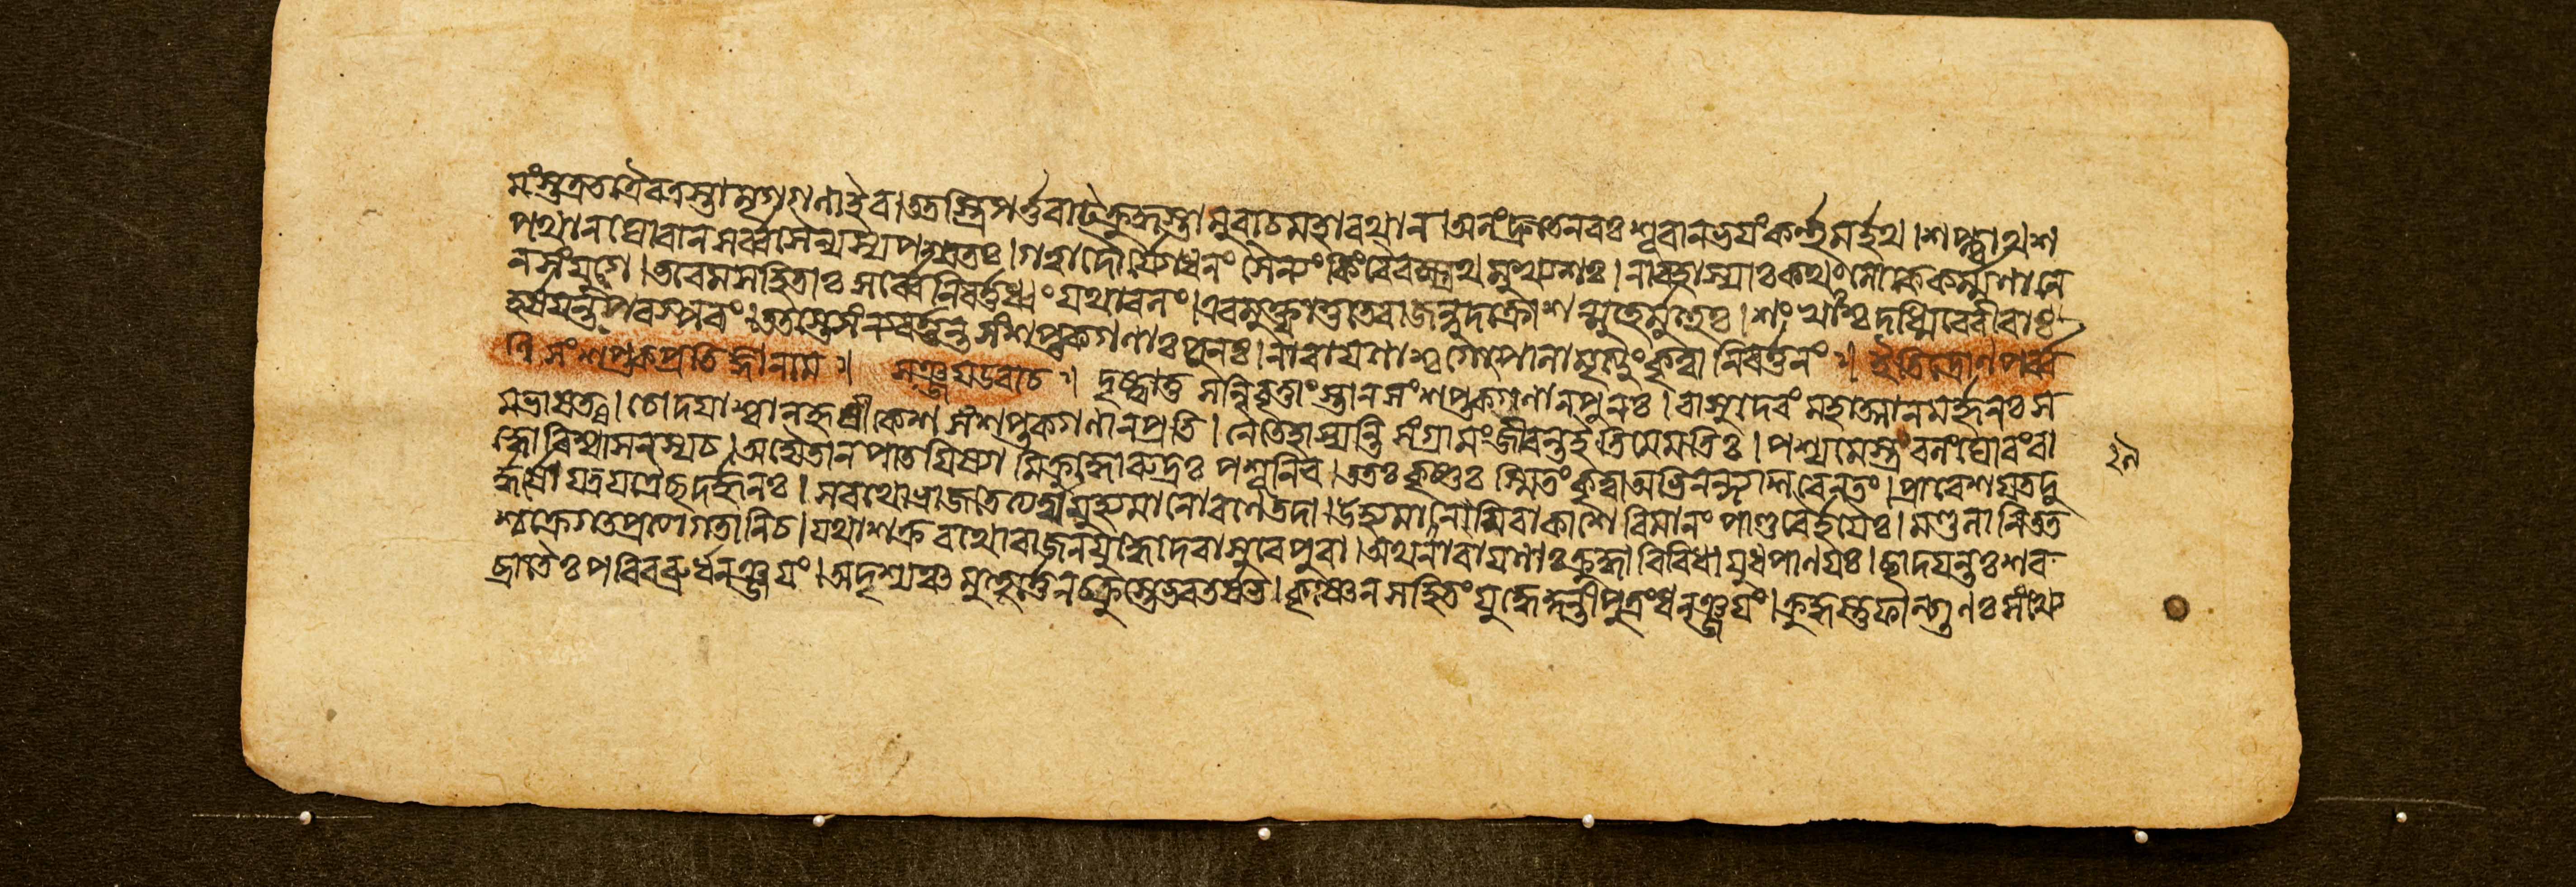 মংস্তত্রতত্রৈবত্রস্তামৃগগণাইব।ততস্ত্রিগর্ত্তৰাট্ক্রুদ্ধস্তানুবাচমহাৰথান।অলংদ্রুতেনবঃশূৰানভয়ংকর্ত্তুমর্হথ।শপ্ত্বাথশ
পথানঘোৰানসর্ব্বসৈন্যস্যপশ্যতঃ।গত্বাদৌর্যোধনংসৈন্যংকিংবৈবক্ষ্যথমুখ্যশঃ।নাবহাস্যাঃকথংলোকেকর্ম্মণানে
নসংযুগে।ভবেমসহিতাঃসর্ব্বেনিবর্ত্তধ্বংযথাবলং।এবমুক্তাস্তুতেৰাজন্নুদক্রোশন্মুহুর্মুহুঃ।শংখাংশ্চদধ্মিৰেবীৰাঃ
হর্ষয়ন্তঃপৰস্পৰং।ততস্তেসংন্যবর্ত্তন্তসংশপ্তকগণাঃপুনঃ।নাৰায়ণাশ্চগোপালামৃত্যুংকৃত্বানিবর্ত্তনং॥ইতিদ্রোণপর্ব্ব
ণিসংশপ্তকপ্রতিজ্ঞানাম॥ সঞ্জয়উবাচ॥ দৃষ্ট্বাতুসন্নিবৃত্তাংস্তানসংশপ্তকগণানপুনঃ।বাসুদেবংমহাত্মানমর্জ্জুনঃস
মভাষত।চোদয়াশ্বানহৃষীকেশসংশপ্তকগণানপ্রতি।নৈতেহাস্যন্তিসংগ্রামংজীবন্তইতিমেমতিঃ।পশ্যমেস্ত্রবলংঘোৰংবা
হ্বোৰিষ্বাসনস্যচ।অদ্যৈতানপাতয়িষ্যামিক্রুদ্ধোৰুদ্রঃপশূনিব।ততঃকৃষ্ণঃস্মিতংকৃত্বাঅভিনন্দ্যশিবেনতং।প্রাবেশয়তদু
র্দ্ধর্ষোযত্রযত্রৈচ্ছদর্জ্জুনঃ।সৰথোভ্রাজতেত্যর্থমুহ্যমানোৰণেতদা।উহ্যমানমিবাকাশেবিমানংপাণ্ডুৰৈর্হয়ৈঃ।মণ্ডলানিতত
শ্চক্রেগতপ্রত্যাগতানিচ।যথাশক্রৰথোৰাজনযুদ্ধেদেবাসুৰেপুৰা।অথনাৰায়ণাঃক্রুদ্ধাবিবিধায়ুধপাণয়ঃ।ছাদয়ন্তঃশৰ
ব্রাতৈঃপৰিবব্রুর্ধনঞ্জয়ং।অদৃশ্যঞ্চমুহূর্ত্তেনচক্রুস্তেভৰতর্ষভ।কৃষ্ণেনসহিতংযুদ্ধেকুন্তীপুত্রংধনঞ্জয়ং।ক্রুদ্ধস্তুফাল্গুণঃসংখ্যে